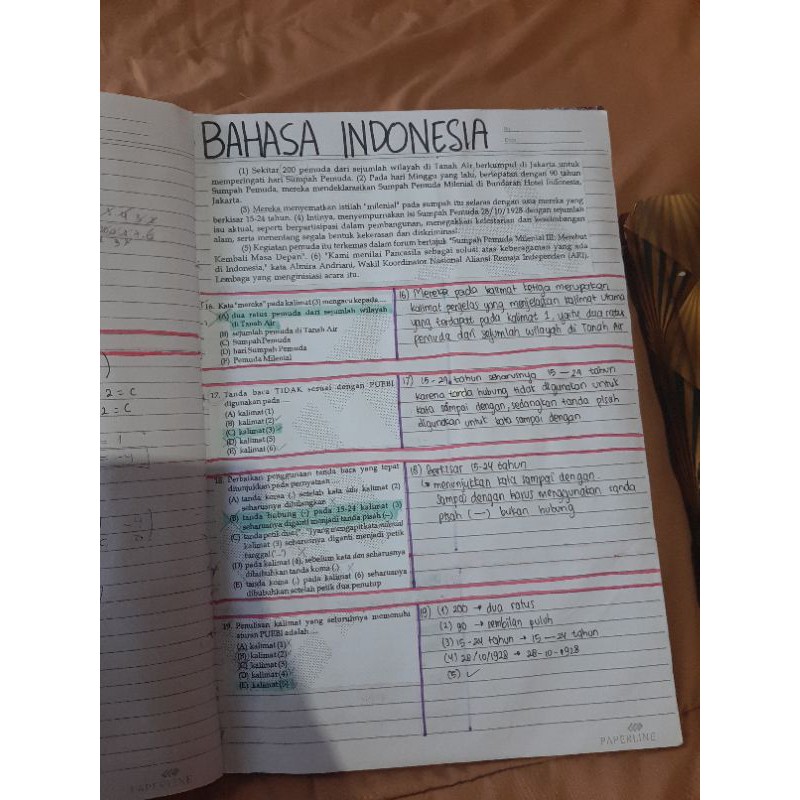 BAHASA INDONESIA
No.
Date
(1) Sekitar 200 pemuda dari sejumlah wilayah di Tanah Air berkumpul di Jakarta untuk
memperingati hari Sumpah Pemuda. (2) Pada hari Minggu yang lalu, bertepatan dengan 90 tahun
Sumpah Pemuda, mereka mendeklarasikan Sumpah Pemuda Milenial di Bundaran Hotel Indonesia,
Jakarta.
(3) Mereka menyematkan istilah "milenial" pada sumpah itu selaras dengan usia mereka yang
berkisar 15-24 tahun. (4) Intinya, menyempurnakan isi Sumpah Pemuda 28/10/1928 dengan sejumlah
isu aktual, seperti berpartisipasi dalam pembangunan, menegakkan kelestarian dan keseimbangan
alam, serta menentang segala bentuk kekerasan dan diskriminasi.
(5) Kegiatan pemuda itu terkemas dalam forum bertajuk "Sumpah Pemuda Milenial III: Merebut
Kembali Masa Depan". (6) "Kami menilai Pancasila sebagai solusi atas keberagaman yang ada
di Indonesia," kata Almira Andriani, Wakil Koordinator Nasional Aliansi Remaja Independen (ARI).
Lembaga yang menginisiasi acara itu.
16. Kata "mereka" pada kalimat (3) mengacu kepada....
(A) dua ratus pemuda dari sejumlah wilayah
di Tanah Air
(B) sejumlah pemuda di Tanah Air
(C) Sumpah Pemuda
(D) hari Sumpah Pemuda
(E) Pemuda Milenial
16) Mereka pada kalimat ketiga merupakan
kalimat penjelas yang menjelaskan kalimat utama
yang terdapat pada kalimat 1, yaitu dua ratus
pemuda dari sejumlah wilayah di Tanah Air
17. Tanda baca TIDAK sesuai dengan PUEBI
digunakan pada
(A) kalimat (1)
(B) kalimat (2)
(C) kalimat (3)
(D) kalimat (5)
(E) kalimat (6)
17) 15-24 tahun seharusnya 15 — 24 tahun
karena tanda hubung tidak digunakan untuk
kata sampai dengan, sedangkan tanda pisah
digunakan untuk kata sampai dengan
18. Perbaikan penggunaan tanda baca yang tepat
ditunjukkan pada pernyataan
(A) tanda koma (,) setelah kata lalu kalimat (2)
seharusnya dihilangkan
(B) tanda hubung (-) pada 15-24 kalimat (3)
seharusnya diganti menjadi tanda pisah (—)
(C) tanda petik dua ("...") yang mengapit kata milenial
kalimat (3) seharusnya diganti menjadi petik
tunggal ('...')
(D) pada kalimat (4), sebelum kata dan seharusnya
dibubuhkan tanda koma (,)
(E) tanda koma (,) pada kalimat (6) seharusnya
dibubuhkan setelah petik dua penutup
18) Berkisar 15-24 tahun
↳ menunjukkan kata sampai dengan.
sampai dengan harus menggunakan tanda
pisah (—) bukan hubung
19. Penulisan kalimat yang seluruhnya memenuhi
aturan PUEBI adalah
(A) kalimat (1)
(B) kalimat (2)
(C) kalimat (3)
(D) kalimat (4)
(E) kalimat (5)
19) (1) 200 → dua ratus
(2) 90 → sembilan puluh
(3) 15-24 tahun → 15 — 24 tahun
(4) 28/10/1928 → 28-10-1928
(5) ✓
PAPERLINE
PAPERLINE
2 = C
2 = C